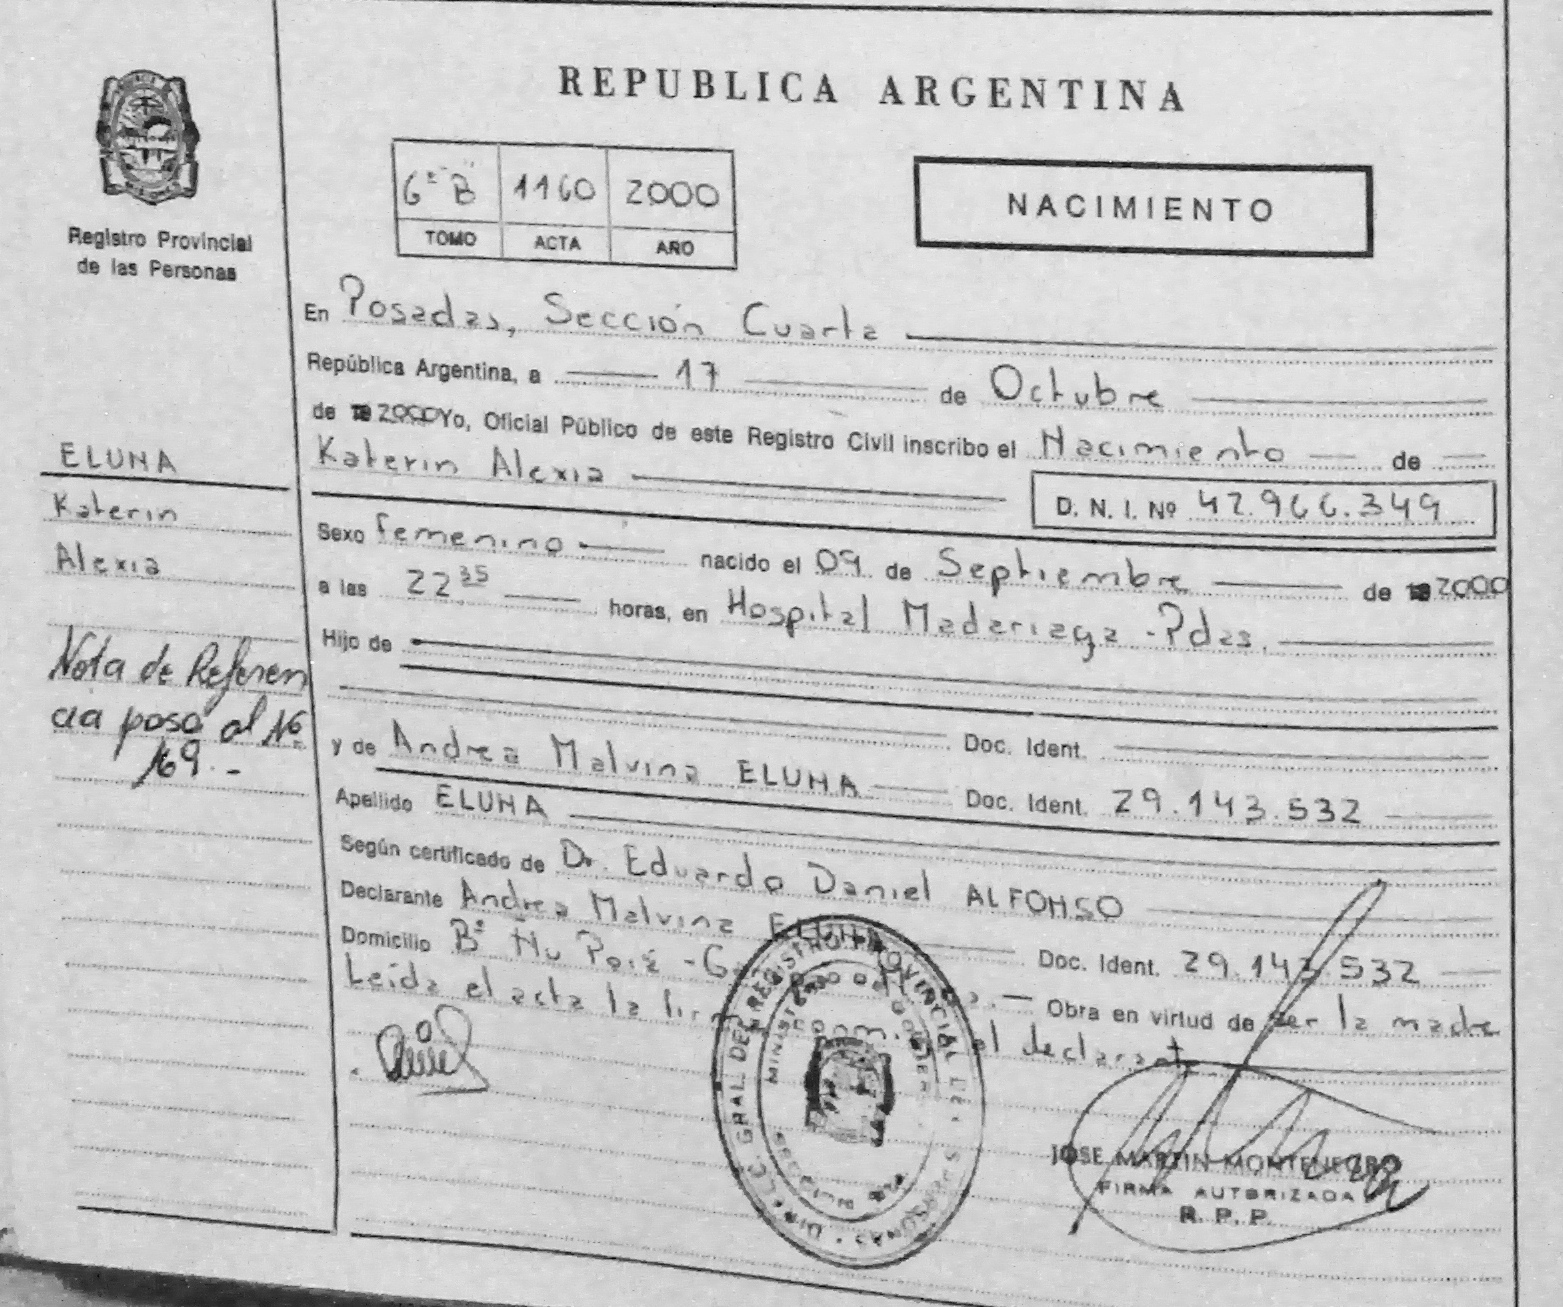 REPUBLICA ARGENTINA
Registro Provincial
de las Personas
6º B 1160 2000
TOMO ACTA AÑO
NACIMIENTO
En Posadas, Sección Cuarta
República Argentina, a 17 de Octubre
de 2000 Yo, Oficial Público de este Registro Civil inscribo el Nacimiento de
Katerin Alexia
D. N. I. Nº 42.966.349
Sexo femenino nacido el 09 de Septiembre de 2000
a las 22 35 horas, en Hospital Madariaga - Pdas.
Hijo de
Doc. Ident.
y de Andrea Malvina ELUNA Doc. Ident. 29.143.532
Apellido ELUNA
Según certificado de Dr. Eduardo Daniel ALFONSO
Declarante Andrea Malvina ELUNA Doc. Ident. 29.143.532
Domicilio Bº Ñu Porá - Obra en virtud de ser la madre
Leída el acta la el declarante
ELUNA
Katerin
Alexia
Nota de Referen
cia pasa al Nº
169.-
JOSE MARTIN MONTENEGRO
FIRMA AUTORIZADA
R. P. P.
GRAL. DEL REGISTRO PROVINCIAL DE LAS PERSONAS
MINISTERIO DE GOBIERNO